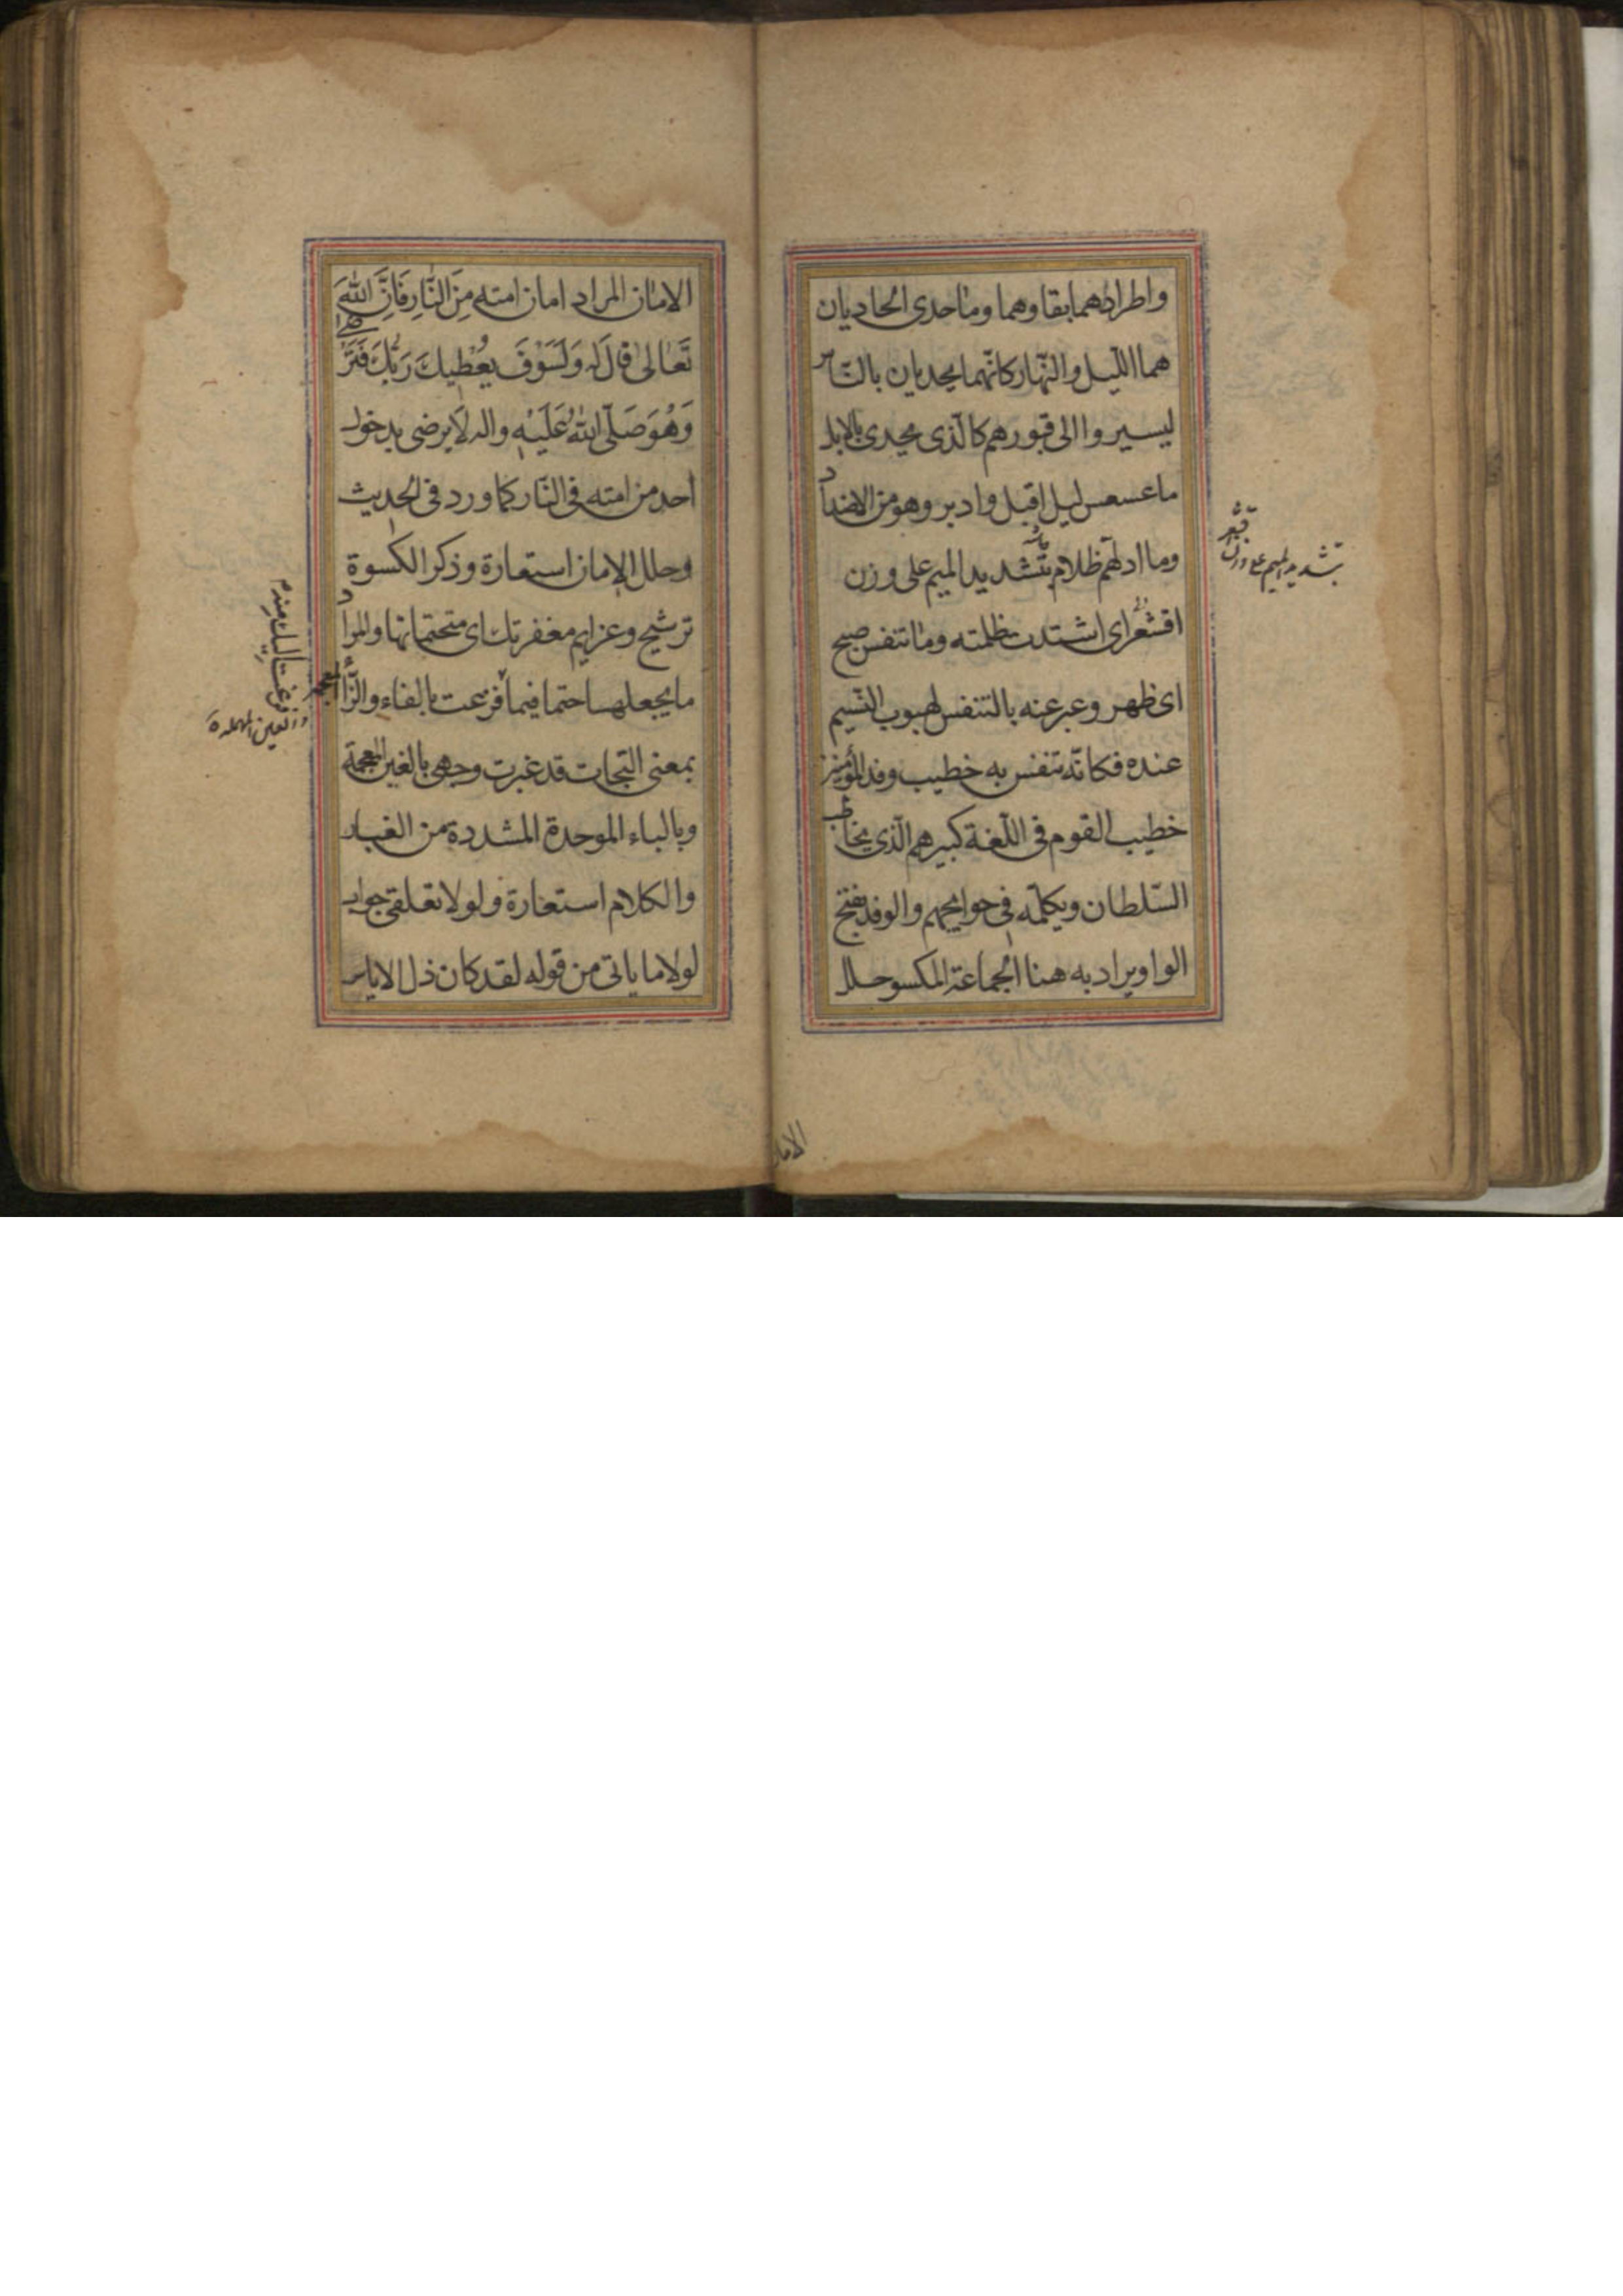 واطرادهما بقاوهما وما حدى الحاديان
هما الليل والنهار كانهما يحديان بالناس
ليسيروا الى قبورهم كالذى يحدى بالابل
ما عسعس ليل اقبل وادبر وهو من الاضداد
وما ادلهم ظلام بتشديد الميم على وزن
اقشعر اى اشتدت ظلمته وما تنفس صبح
اى ظهر وعبر عنه بالتنفس لهبوب النسيم
عنده فكانه تنفس به خطيب وفد المؤمنين
خطيب القوم فى اللغة كبيرهم الذى يخاطب
السلطان ويكلمه فى حوايجهم والوفد بفتح
الواو ويراد به هنا الجماعة المكسو حلل
بتشديد الميم على وزن اقشعر
الامان
الامان المراد امان امته مِنَ النَّارِ فَاِنَّ اللهَ
تَعَالىٰ قال له وَلَسَوْفَ يُعْطِيكَ رَبُّكَ فَتَرْضٰى
وَهُوَ صَلَّى اللهُ عَلَيْهِ واله لا يرضى بدخول
احد من امته فى النار كما ورد فى الحديث
وحلل الامان استعارة وذكر الكسوة
ترشيح وعزايم مغفرتك اى متحتماتها والمراد
ما يجعلها حتما فيما فزعت بالفاء والزاء المعجمة
بمعنى التجات قد غبرت وجهى بالغين المعجمة
وبالباء الموحدة المشددة من الغبار
والكلام استعارة ولولا تعلقى جواب
لولا ما ياتى من قوله لقد كان ذل الاياس
فزعت اليك منهم
والعين المهملة